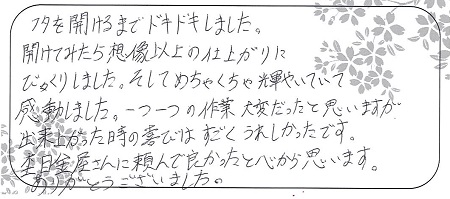 フタを開けるまでドキドキしました。
開けてみたら想像以上の仕上がりに
びっくりしました。そしてめちゃくちゃ輝やいていて
感動しました。一つ一つの作業大変だったと思いますが
出来上がった時の喜びはすごくうれしかったです。
杢目金屋さんに頼んで良かったと心から思います。
ありがとうございました。